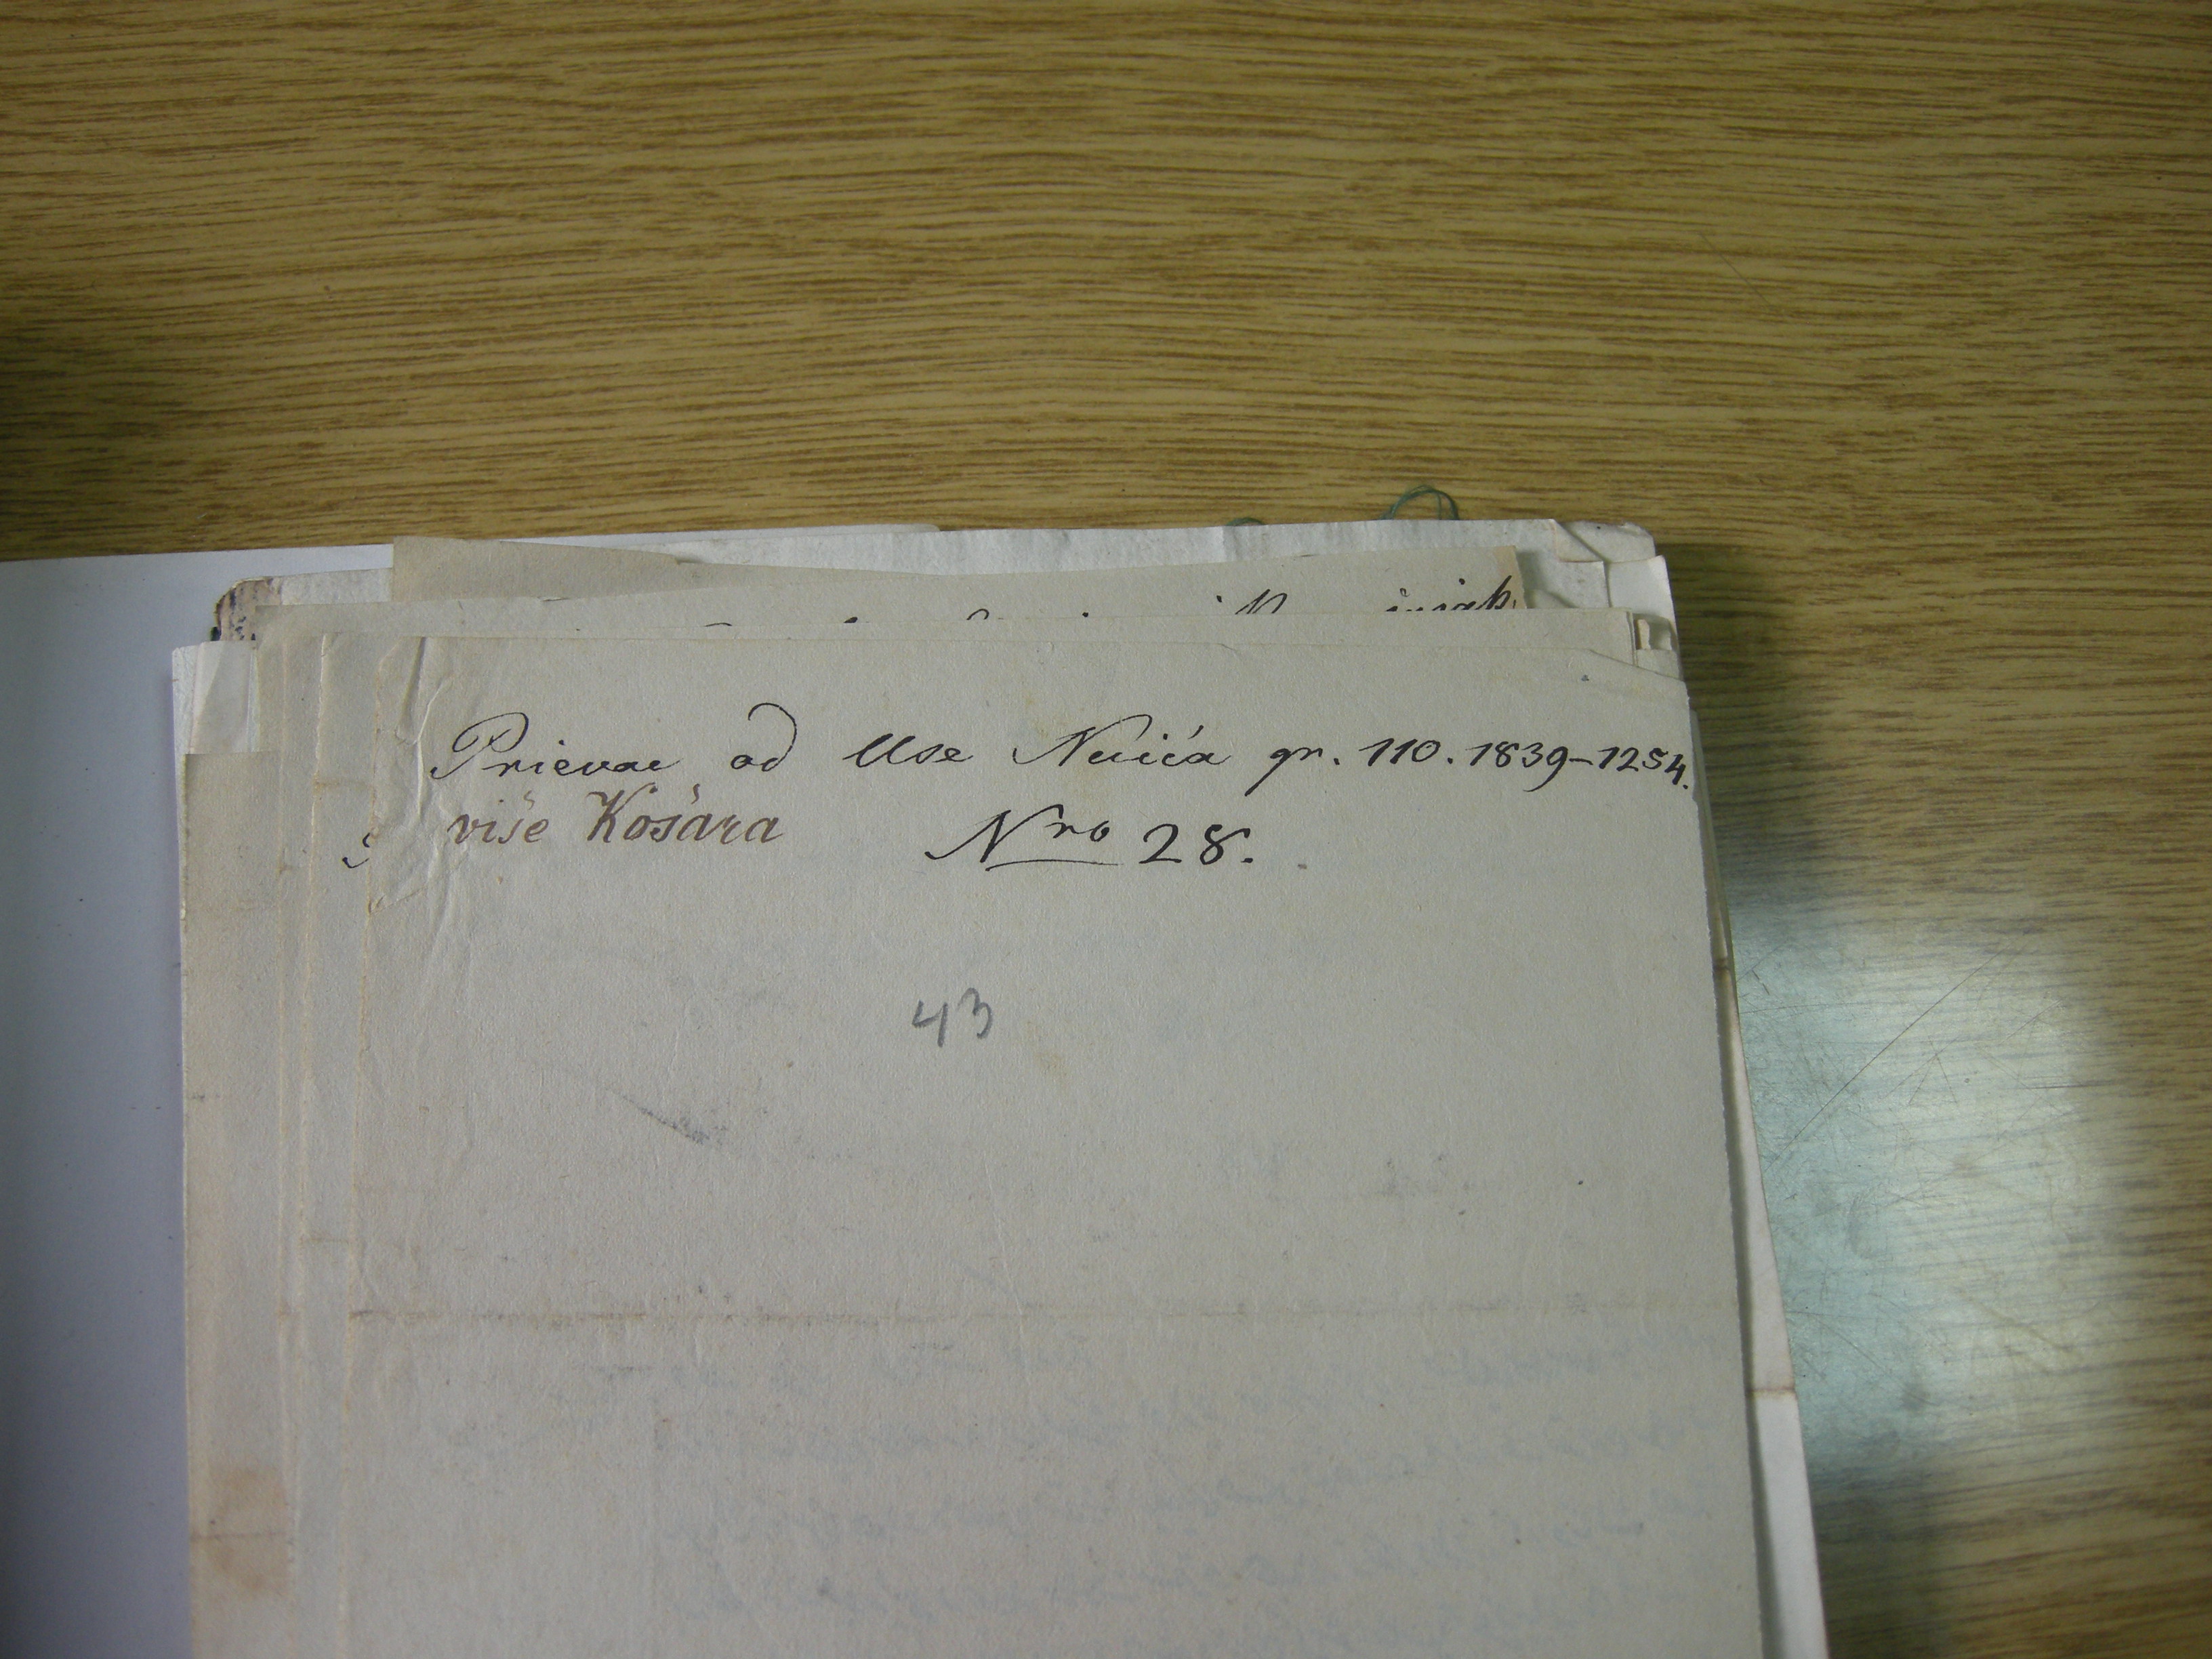 Prievac od Use Nuića gr. 110. 1839–1254.
više Košara Nro 28.
43